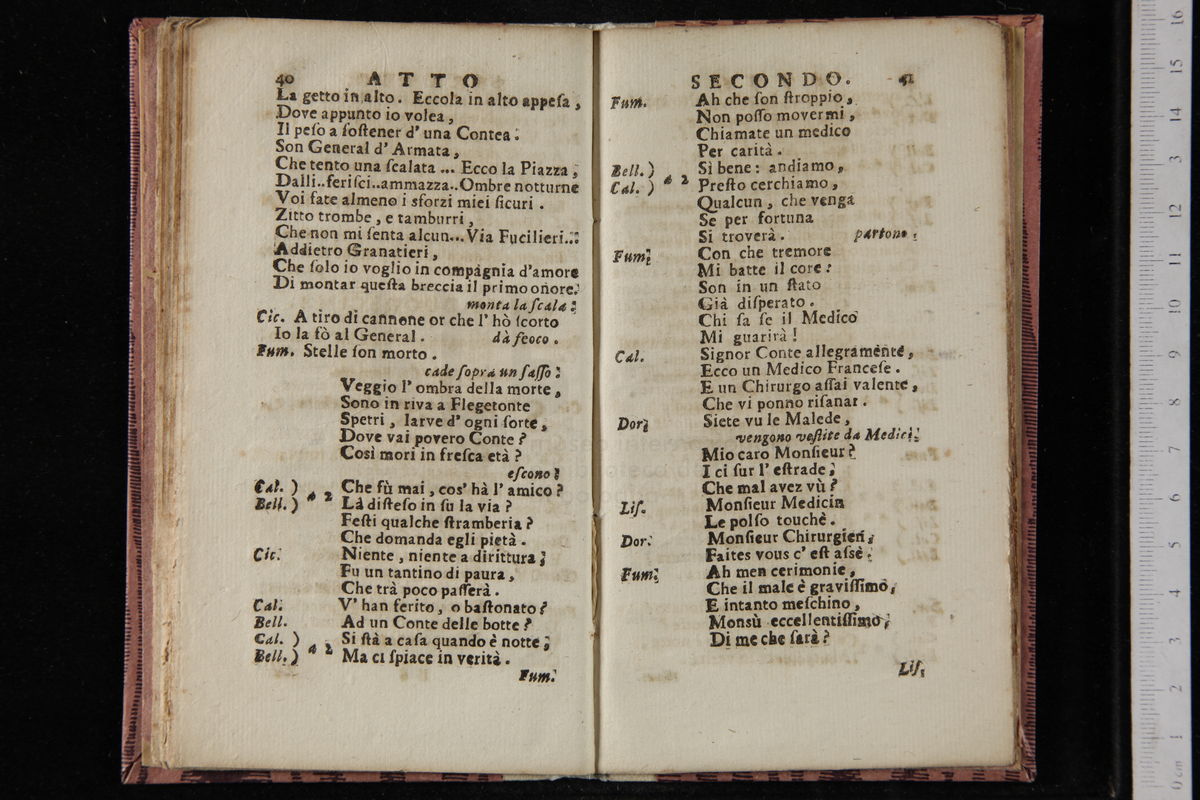 40 ATTO
La getto in alto. Eccola in alto appeſa,
Dove appunto io volea,
Il peſo a ſoſtener d' una Contea.
Son General d' Armata,
Che tento una ſcalata ... Ecco la Piazza,
Dalli..feriſci..ammazza..Ombre notturne
Voi fate almeno i sforzi miei ſicuri.
Zitto trombe, e tamburri,
Che non mi ſenta alcun...Via Fucilieri..:
Addietro Granatieri,
Che ſolo io voglio in compagnia d'amore
Di montar queſta breccia il primo onore.
monta la ſcala:
Cic. A tiro di cannone or che l' hò ſcorto
Io la fò al General. dà feoco.
Fum. Stelle ſon morto.
cade ſopra un ſaſſo:
Veggio l' ombra della morte,
Sono in riva a Flegetonte
Spetri, larve d' ogni ſorte,
Dove vai povero Conte?
Così mori in freſca età?
eſcono:
Cal. ) a 2 Che fù mai, cos' hà l' amico?
Bell. ) Là diſteſo in ſu la via?
Feſti qualche ſtramberia?
Che domanda egli pietà.
Cic. Niente, niente a dirittura;
Fu un tantino di paura,
Che trà poco paſſerà.
Cal. V' han ferito, o baſtonato?
Bell. Ad un Conte delle botte?
Cal. ) a 2 Si ſtà a caſa quando è notte;
Bell. ) Ma ci ſpiace in verità.
Fum.
SECONDO. 41
Fum. Ah che ſon ſtroppio,
Non poſſo movermi,
Chiamate un medico
Per carità.
Bell. ) a 2 Sì bene: andiamo,
Cal. ) Preſto cerchiamo,
Qualcun, che venga
Se per fortuna
Si troverà. partono.
Fum. Con che tremore
Mi batte il core:
Son in un ſtato
Già diſperato.
Chi ſa ſe il Medico
Mi guarirà!
Cal. Signor Conte allegramente,
Ecco un Medico Franceſe.
E un Chirurgo aſſai valente,
Che vi ponno riſanar.
Dor. Siete vu le Malede,
vengono veſtite da Medici.
Mio caro Monſieur?
I ci ſur l' eſtrade;
Che mal avez vù?
Lif. Monſieur Medicin
Le polſo touchè.
Dor. Monſieur Chirurgien,
Faites vous c' eſt aſsè.
Fum. Ah men cerimonie,
Che il male è graviſſimo,
E intanto meſchino,
Monsù eccellentiſſimo,
Di me che ſarà?
Liſ.